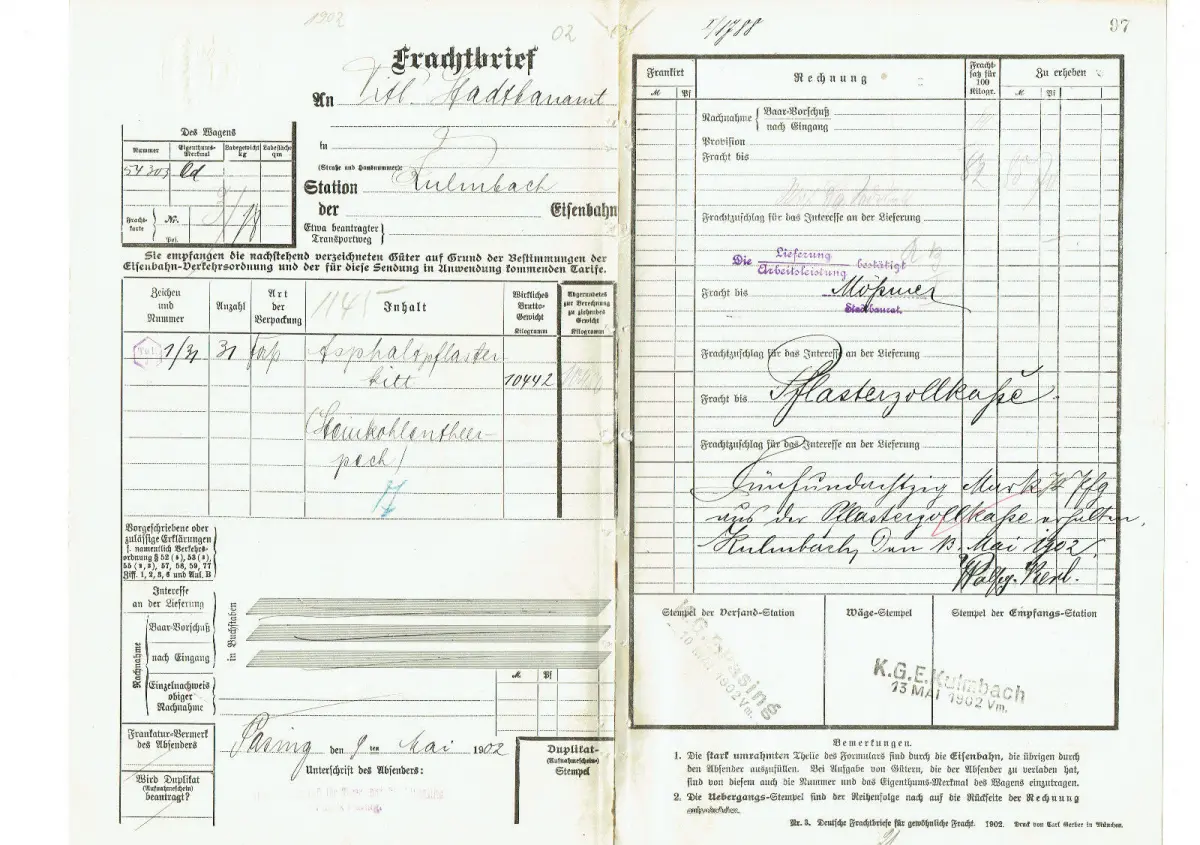 1902
02
Frachtbrief
An Titl. Stadtbauamt
in
(Straße und Hausnummer)
Station Kulmbach
der Eisenbahn
Etwa beantragter
Transportweg
Des Wagens
Nummer Eigenthums-Merkmal Ladegewicht kg Ladefläche qm
54303
Fracht-karte Nr.
Pos.
Sie empfangen die nachstehend verzeichneten Güter auf Grund der Bestimmungen der
Eisenbahn-Verkehrsordnung und der für diese Sendung in Anwendung kommenden Tarife.
Zeichen und Nummer Anzahl Art der Verpackung Inhalt Wirkliches Brutto-Gewicht Kilogramm Abgerundetes zur Berechnung zu ziehendes Gewicht Kilogramm
1145
1/31 31 Asphaltpflaster
kitt 10442
(Steinkohlentheer-
pech)
17
Vorgeschriebene oder
zulässige Erklärungen
s. namentlich Verkehrs-
ordnung § 52 (3), 53 (3)
55 (2, 3), 57, 58, 59, 77
Ziff. 1, 2, 3, 6 und Anl. B
Interesse
an der Lieferung
Nachnahme
Baar-Vorschuß
nach Eingang
in Buchstaben
Einzelnachweis
obiger
Nachnahme
M Pf
Frankatur-Vermerk
des Absenders
Pasing den 9ten Mai 1902
Unterschrift des Absenders:
Wird Duplikat
(Aufnahmeschein)
beantragt?
Duplikat-
(Aufnahmeschein-)
Stempel
1788
97
Frankirt Rechnung Fracht-satz für 100 Kilogr. Zu erheben
M Pf M Pf
Nachnahme Baar-Vorschuß
nach Eingang
Provision
Fracht bis
Frachtzuschlag für das Interesse an der Lieferung
Die Lieferung
Arbeitsleistung bestätigt
Fracht bis Mößmer
Stadtbaurat.
Frachtzuschlag für das Interesse an der Lieferung
Fracht bis Pflasterzollkaße.
Frachtzuschlag für das Interesse an der Lieferung
Fünfundachtzig Mark Pfg
aus der Pflasterzollkaße erhalten.
Kulmbach, den 13. Mai 1902.
Stempel der Versand-Station Wäge-Stempel Stempel der Empfangs-Station
K.G.E. Pasing
1902 Vm.
K.G.E. Kulmbach
13 MAI 1902 Vm.
Bemerkungen.
1. Die stark umrahmten Theile des Formulars sind durch die Eisenbahn, die übrigen durch
den Absender auszufüllen. Bei Aufgabe von Gütern, die der Absender zu verladen hat,
sind von diesem auch die Nummer und das Eigenthums-Merkmal des Wagens einzutragen.
2. Die Uebergangs-Stempel sind der Reihenfolge nach auf die Rückseite der Rechnung
Nr. 3. Deutsche Frachtbriefe für gewöhnliche Fracht. 1902. Druck von Carl Gerber in München.